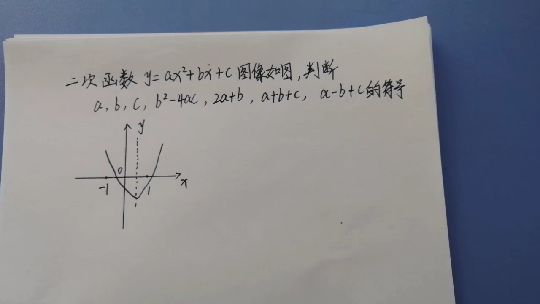 二次函数 y=ax²+bx+c 图像如图,判断
a, b, c, b²-4ac, 2a+b, a+b+c, a-b+c的符号
y
0
-1
1
x